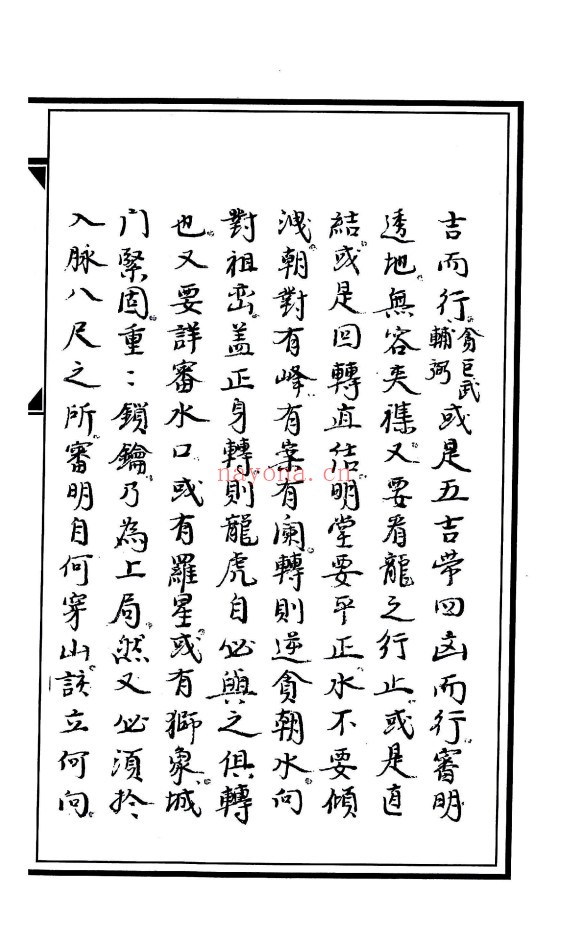 吉而行。貪巨武輔弼或是五吉帶四凶而行。審明
透地。無容夾襍又要看龍之行止。或是直
結。或是回轉直结明堂要平正。水不要傾
洩。朝對有峰。有案有闌。轉則逆貪朝水。向
對祖峦。盖正身轉則龍虎自必與之俱轉
也。又要詳審水口。或有羅星。或有獅象。城
门緊固。重：鎖鑰。乃為上局。然又必須於
入脉八尺之所。審明自何穿山。該立何向。
nayona.cn